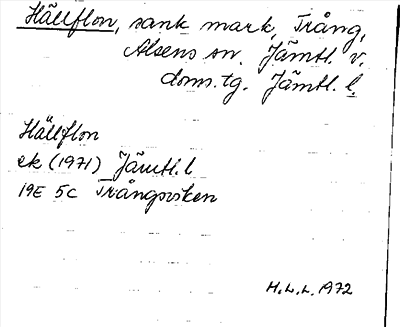 Hällflon, sank mark, Trång,
Alsens sn. Jämtl. v.
doms.tg. Jämtl. l.
Hällflon
ek (1971) Jämtl. l
19E 5c Trångsviken
H.L.L. 1972